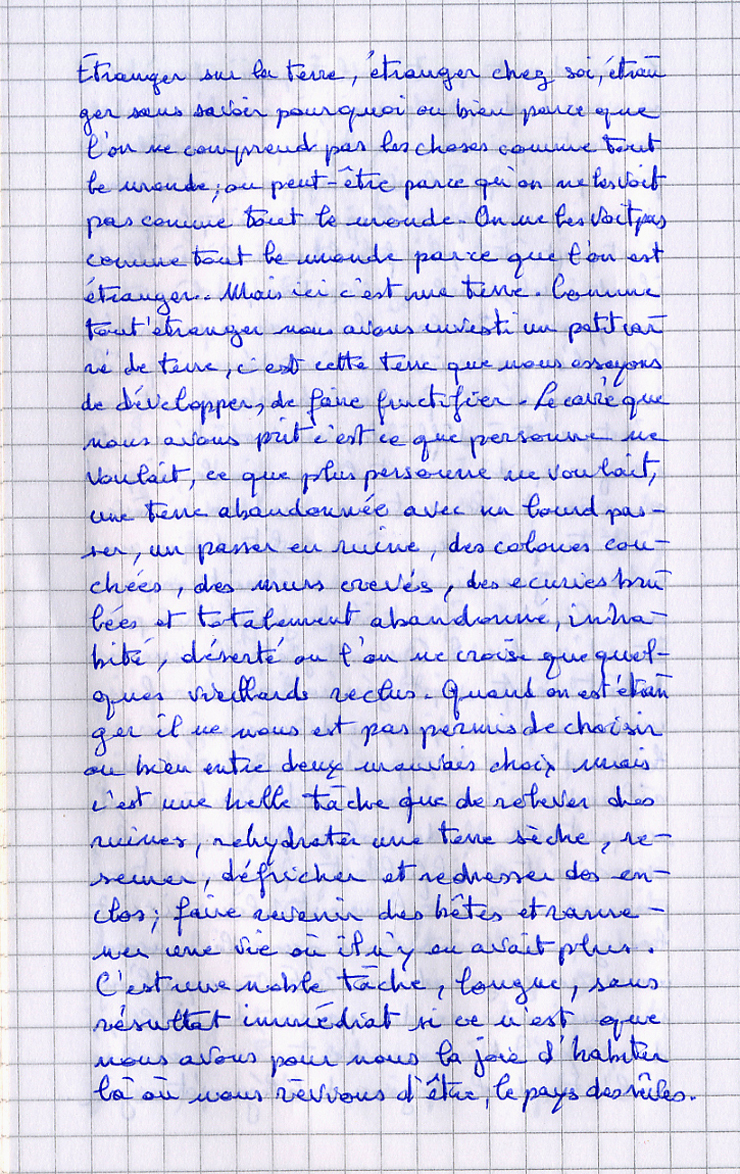 Étranger sur la terre, étranger chez soi, étran
ger sans savoir pourquoi ou bien parce que
l'on ne comprend pas les choses comme tout
le monde; ou peut-être parce qu'on ne les voit
pas comme tout le monde. On ne les voit pas
comme tout le monde parce que l'on est
étranger.. Mais ici c'est une terre. Comme
tout étranger nous avons investi un petit car
ré de terre, c'est cette terre que nous essayons
de développer, de faire fructifier. Le carré que
nous avons prit c'est ce que personne ne
voulait, ce que plus personne ne voulait,
une terre abandonnée avec un lourd pas-
ser, un passer en ruine, des colones cou-
chées, des murs crevés, des ecuries bru
lées et totalement abandonné, inha-
bité, déserté ou l'on ne croise que quel-
ques vieillards reclus. Quand on est étran
ger il ne nous est pas permis de choisir
ou bien entre deux mauvais choix mais
c'est une belle tâche que de relever des
ruines, rehydrater une terre sèche, re-
semer, défricher et redresser des en-
clos; faire revenir des bêtes et rame-
ner une vie où il n'y en avait plus.
C'est une noble tâche, longue, sans
résultat immédiat si ce n'est que
nous avons pour nous la joie d'habiter
là où nous rêvions d'être, le pays des